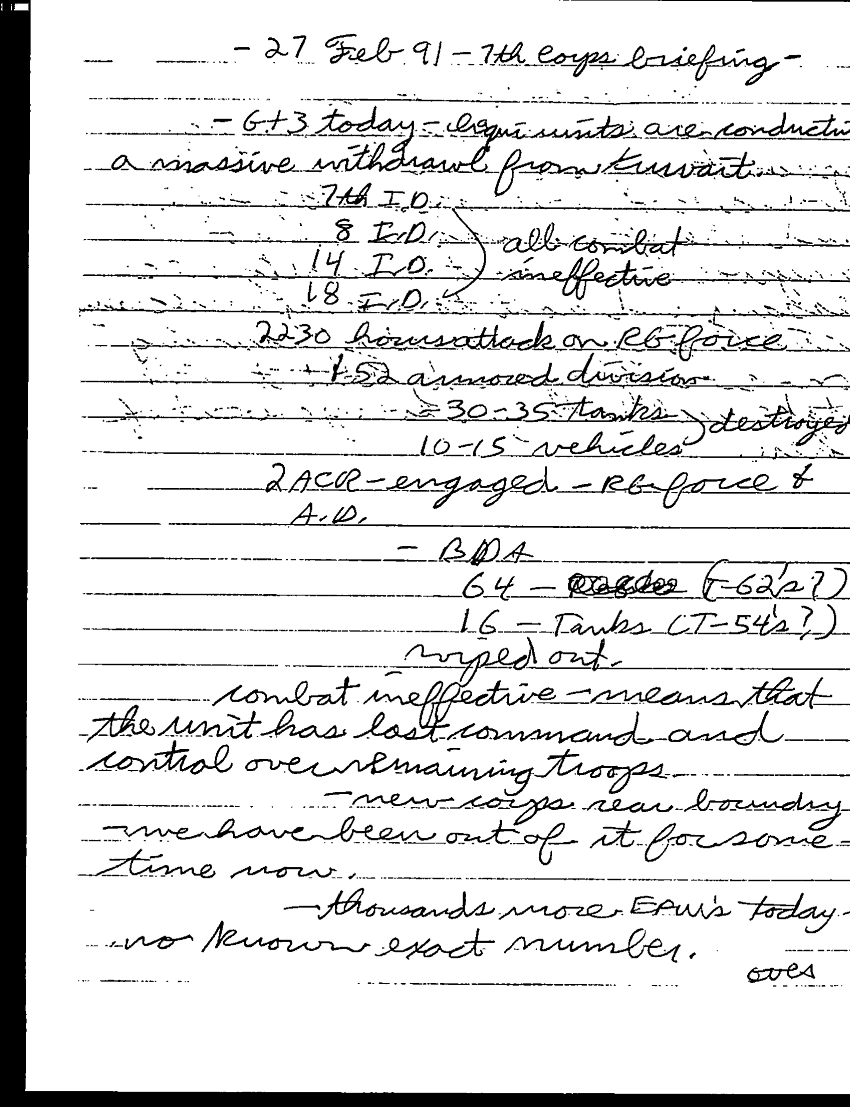 - 27 Feb 91 - 7th Corps briefing -
- G+3 today - Iraqi units are conductin
a massive withdrawl from Kuwait.
7th I.D.
8 I.D.
14 I.D.
18 I.D.
all combat
ineffective
2230 hours attack on RG force
+ 52 armored division
- 30-35 tanks
10-15 vehicles
destroyed
2ACR - engaged - RG force &
A.D.
- BDA
64 - (T-62's?)
16 - Tanks (T-54's?)
wiped out.
combat ineffective - means that
the unit has lost command and
control over remaining troops.
- new corps rear boundry
- we have been out of it for some-
time now.
- thousands more EPW's today -
no known exact number.
over